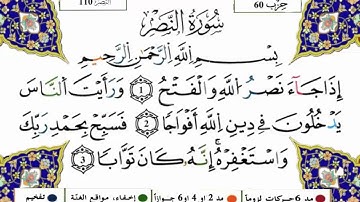 النصر 110
حزب 60
سُورَةُ النَّصْرِ
بِسْمِ اللَّهِ الرَّحْمَٰنِ الرَّحِيمِ
إِذَا جَآءَ نَصْرُ اللَّهِ وَالْفَتْحُ ١ وَرَأَيْتَ النَّاسَ
يَدْخُلُونَ فِي دِينِ اللَّهِ أَفْوَاجًا ٢ فَسَبِّحْ بِحَمْدِ رَبِّكَ
وَاسْتَغْفِرْهُ ۚ إِنَّهُ كَانَ تَوَّابًا ٣
مد 6 حركات لزوماً مد 2 او 4 او 6 جوازاً إخفاء، مواقع الغنة تفخيم